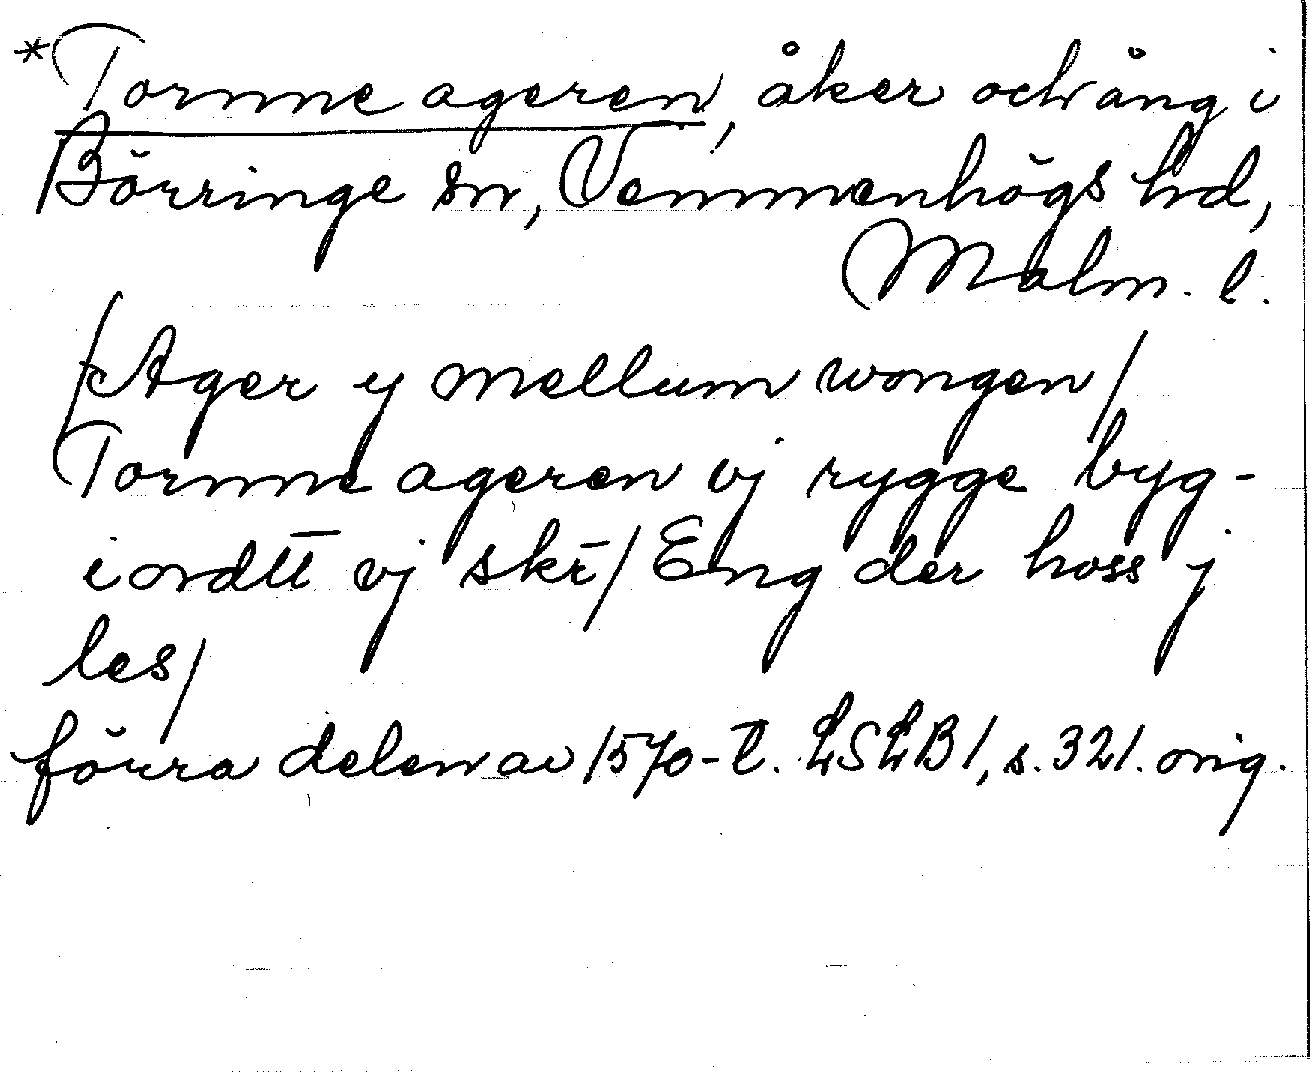 *Tornne ageren, åker och äng i
Börringe sn, Vemmenhögs hd,
Malm. l.
/Ager y mellum wongen/
Tornne ageren vj rygge byg-
iordtt vj skr̄/ Eng der hoss j
les/
förra delen av 1570-t. LSLB1, s. 321. orig.